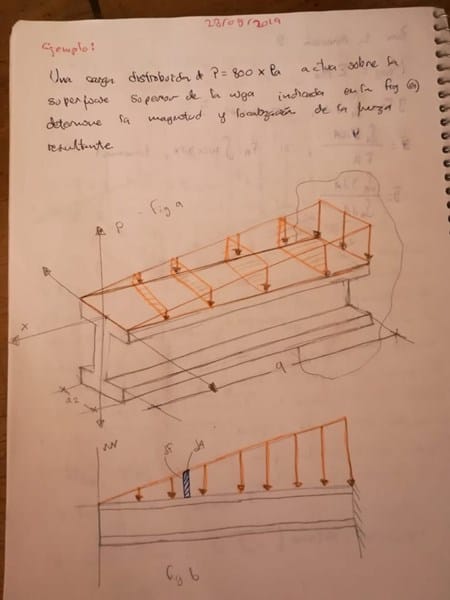 23/09/2019
Ejemplo:
Una carga distribuida d P = 800 x Pa actua sobre la
superficie superior de la viga indicada en la fig (a)
determine la magnitud y localización de la fuerza
resultante
P
Fig a
x
9
a2
W
dx
Fig b